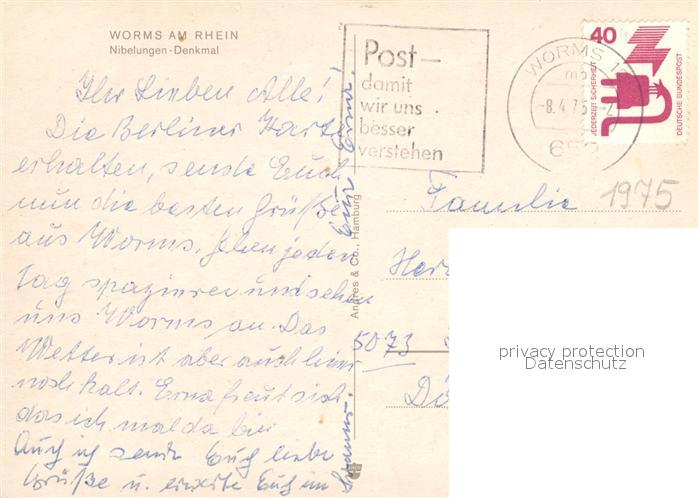 WORMS AM RHEIN
Nibelungen-Denkmal
Ihr Lieben Alle!
Die Berliner Karte
erhalten, sende Euch
nun die besten Grüße
aus Worms. Gehen jeden
Tag spazieren und sehen
uns Worms an. Das
Wetter ist aber auch hier
noch kalt. Erna freut sich
das ich mal da bin
Auch ich sende Euch liebe
Grüße u. erwarte Euch im
Sommer. Eure Erna.
Andres & Co., Hamburg
Post-
damit
wir uns
besser
verstehen
WORMS 1
-8.4.75
652
40
JEDERZEIT SICHERHEIT
DEUTSCHE BUNDESPOST
1975
Familie
5073
privacy protection
Datenschutz